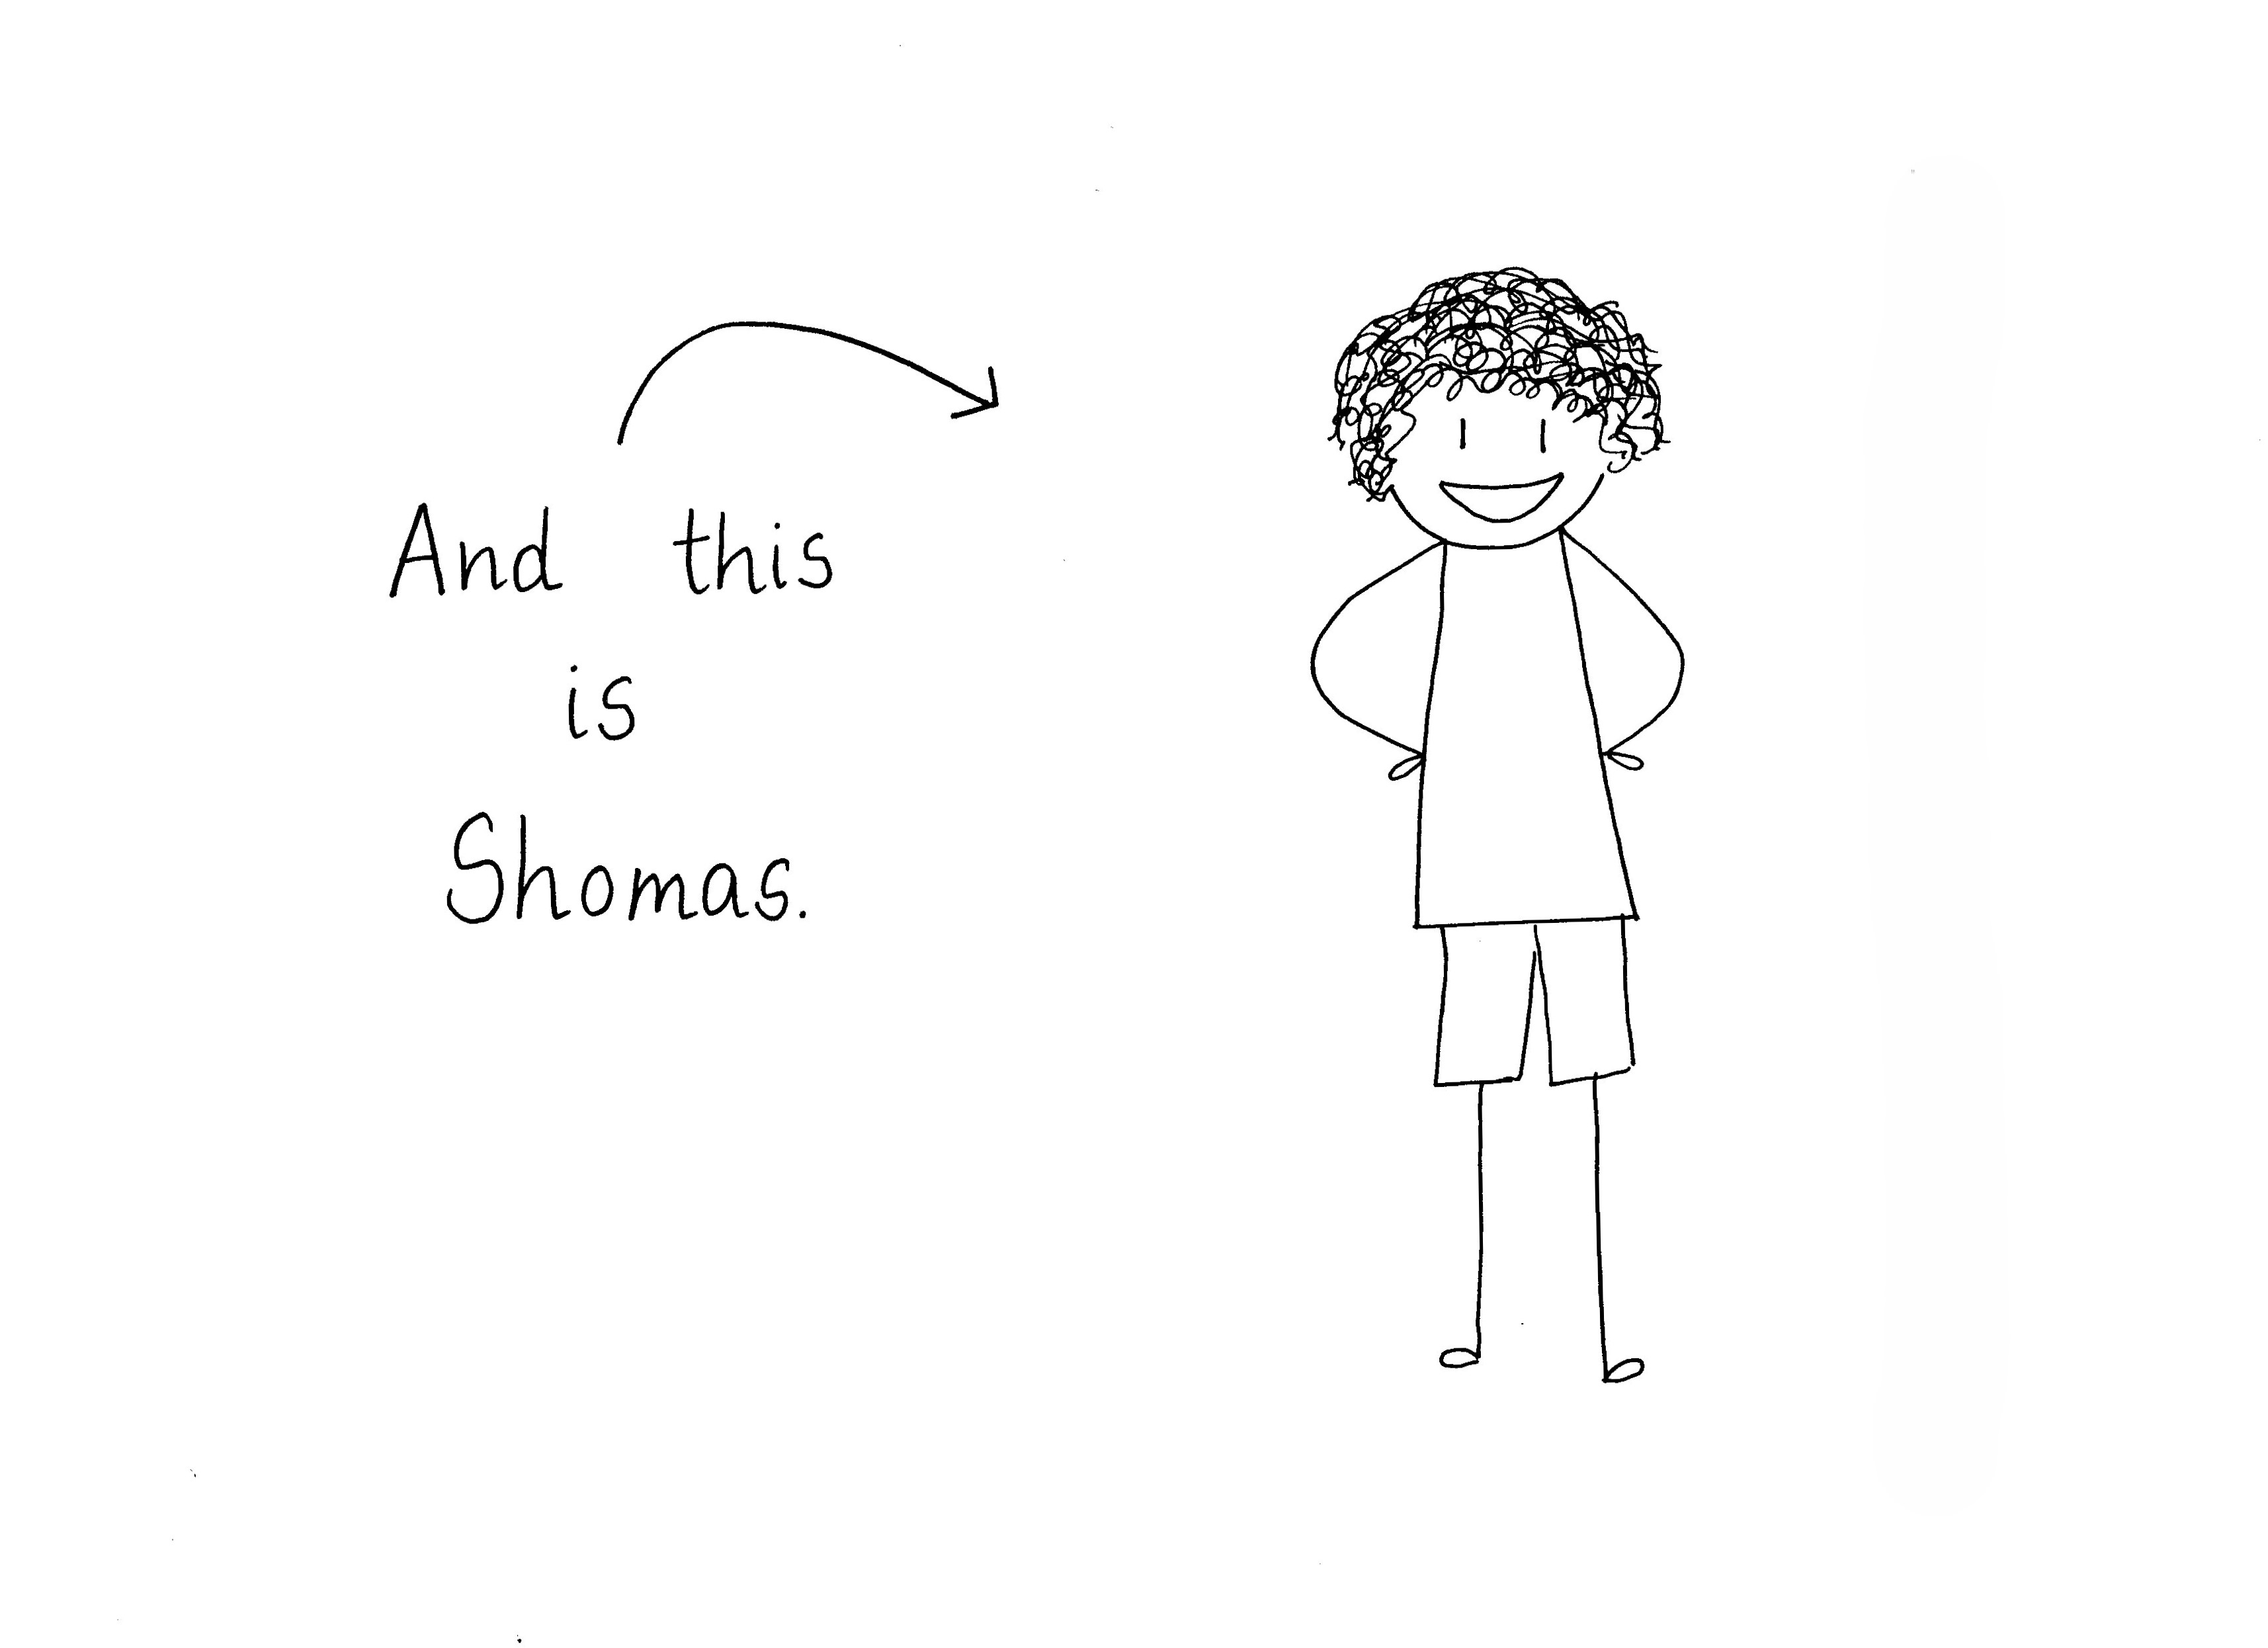 And this
is
Shomas.